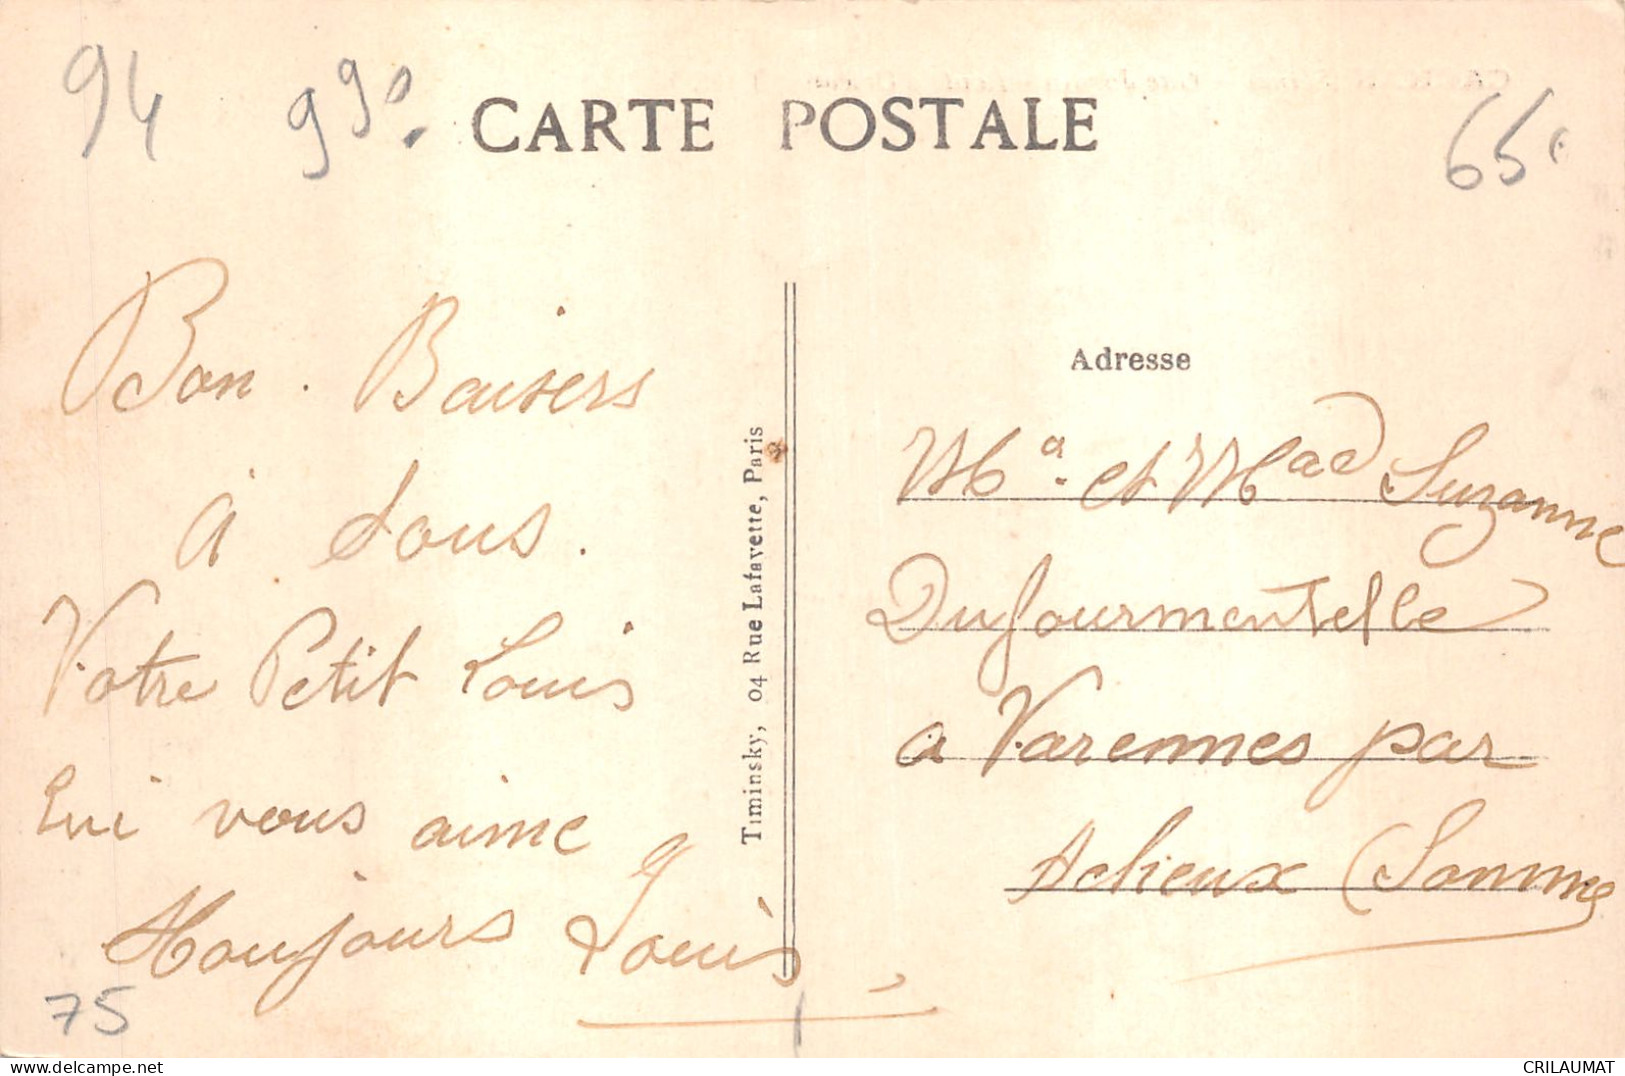 94 99°. CARTE POSTALE 65
Bon. Baisers
à tous.
Votre Petit Louis
Qui vous aime
Toujours Louis
75
Timinsky, 04 Rue Lafayette, Paris
Adresse
Mr. et Mad Suzanne
Dufourmentelle
a Varennes par
Acheux (Somme
CRILAUMAT